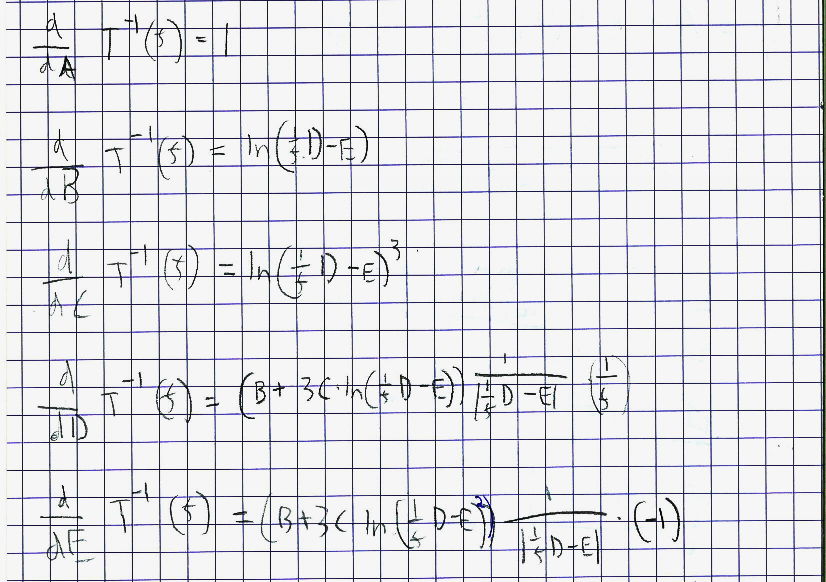 d/dA T^-1(f) = 1
d/dB T^-1(f) = ln(1/f D-E)
d/dC T^-1(f) = ln(1/f D-E)^3
d/dD T^-1(f) = (B + 3C·ln(1/f D-E)) 1/|1/f D-E| (1/f)
d/dE T^-1(f) = (B+3C ln(1/f D-E)^2) 1/|1/f D-E| · (-1)